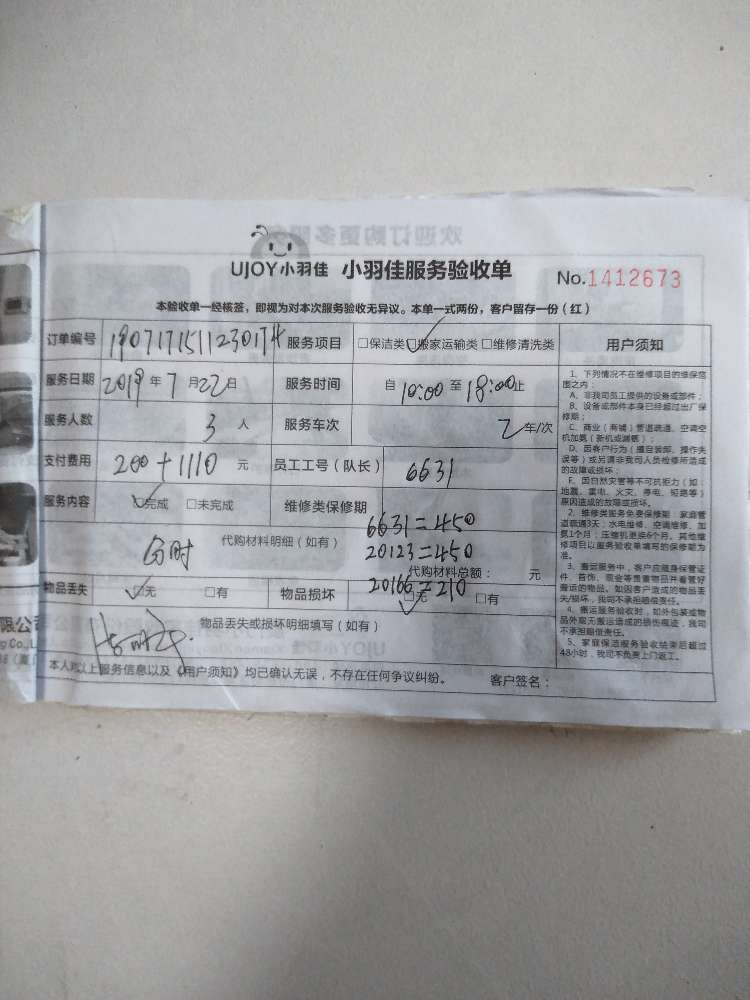 UJOY小羽佳 小羽佳服务验收单 No.1412673
本验收单一经核签，即视为对本次服务验收无异议。本单一式两份，客户留存一份（红）
订单编号 服务项目 □保洁类 □搬家运输类 □维修清洗类
服务日期 2019年7月22日 服务时间 自10:00至18:00止
服务人数 3人 服务车次 2车/次
支付费用 200+1110元 员工工号（队长） 6631
服务内容 □完成 □未完成 维修类保修期
6631=450
20123=450
20166=210
代购材料明细（如有）
代购材料总额： 元
物品丢失 □无 □有 物品损坏 □无 □有
物品丢失或损坏明细填写（如有）
本人对以上服务信息以及《用户须知》均已确认无误，不存在任何争议纠纷。 客户签名：
用户须知
1、下列情况不在维修项目的维保范
围之内：
A、非我司员工提供的设备或部件；
B、设备或部件本身已经超过出厂保
修期；
C、商业（商铺）管道疏通、空调空
机加氨（新机或漏氨）；
D、因客户行为（擅自装卸、操作失
误等）或另请非我司人员检修所造成
的故障或损坏；
F、因自然灾害等不可抗拒力（如：
地震、雷电、火灾、停电、短路等）
原因造成的故障或损坏。
2、维修类服务免费保修期：家庭管
道疏通3天；水电维修、空调维修、加
氨1个月；压缩机更换6个月。其他维
修项目以服务验收单填写的保修期为
准。
3、搬运服务中，客户应随身保管证
件、首饰、现金等贵重物品并看管好
搬运的物品。如因客户造成的物品丢
失/损坏，我司不承担赔偿责任。
4、搬运服务验收时，如外包装或物
品外观无搬运造成的损伤痕迹，我司
不承担赔偿责任。
5、家庭保洁服务验收结束后超过
48小时，我司不负责上门返工。